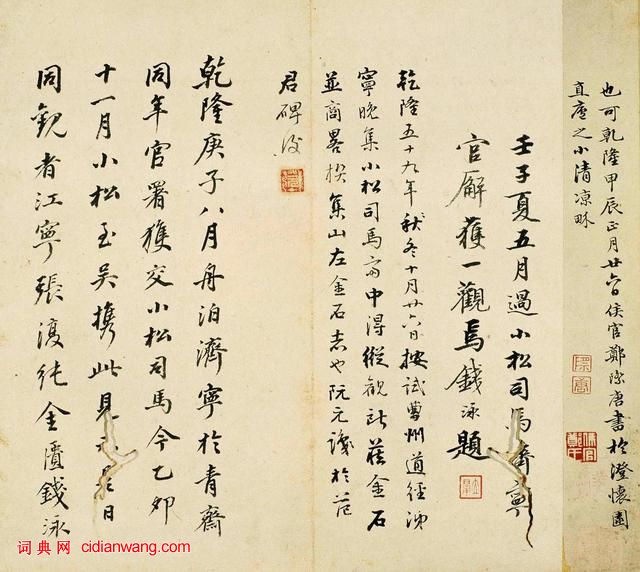 也可乾隆甲辰正月廿六日侯官鄭際唐書於澄懷園
直廬之小清涼
壬子夏五月過小松司馬濟寧
官廨獲一觀焉錢泳題
乾隆五十九年秋冬十月廿六日按試曹州道經沛
寧晚集小松司馬齋中得縱觀所藏金石
並商畧撰集山左金石志也阮元識於范
君碑後
乾隆庚子八月舟泊濟寧於青齋
同年官署獲交小松司馬今乙卯
十一月小松至吳攜此見示是日
同觀者江寧張復純金匱錢泳
词典网 cidianwang.com